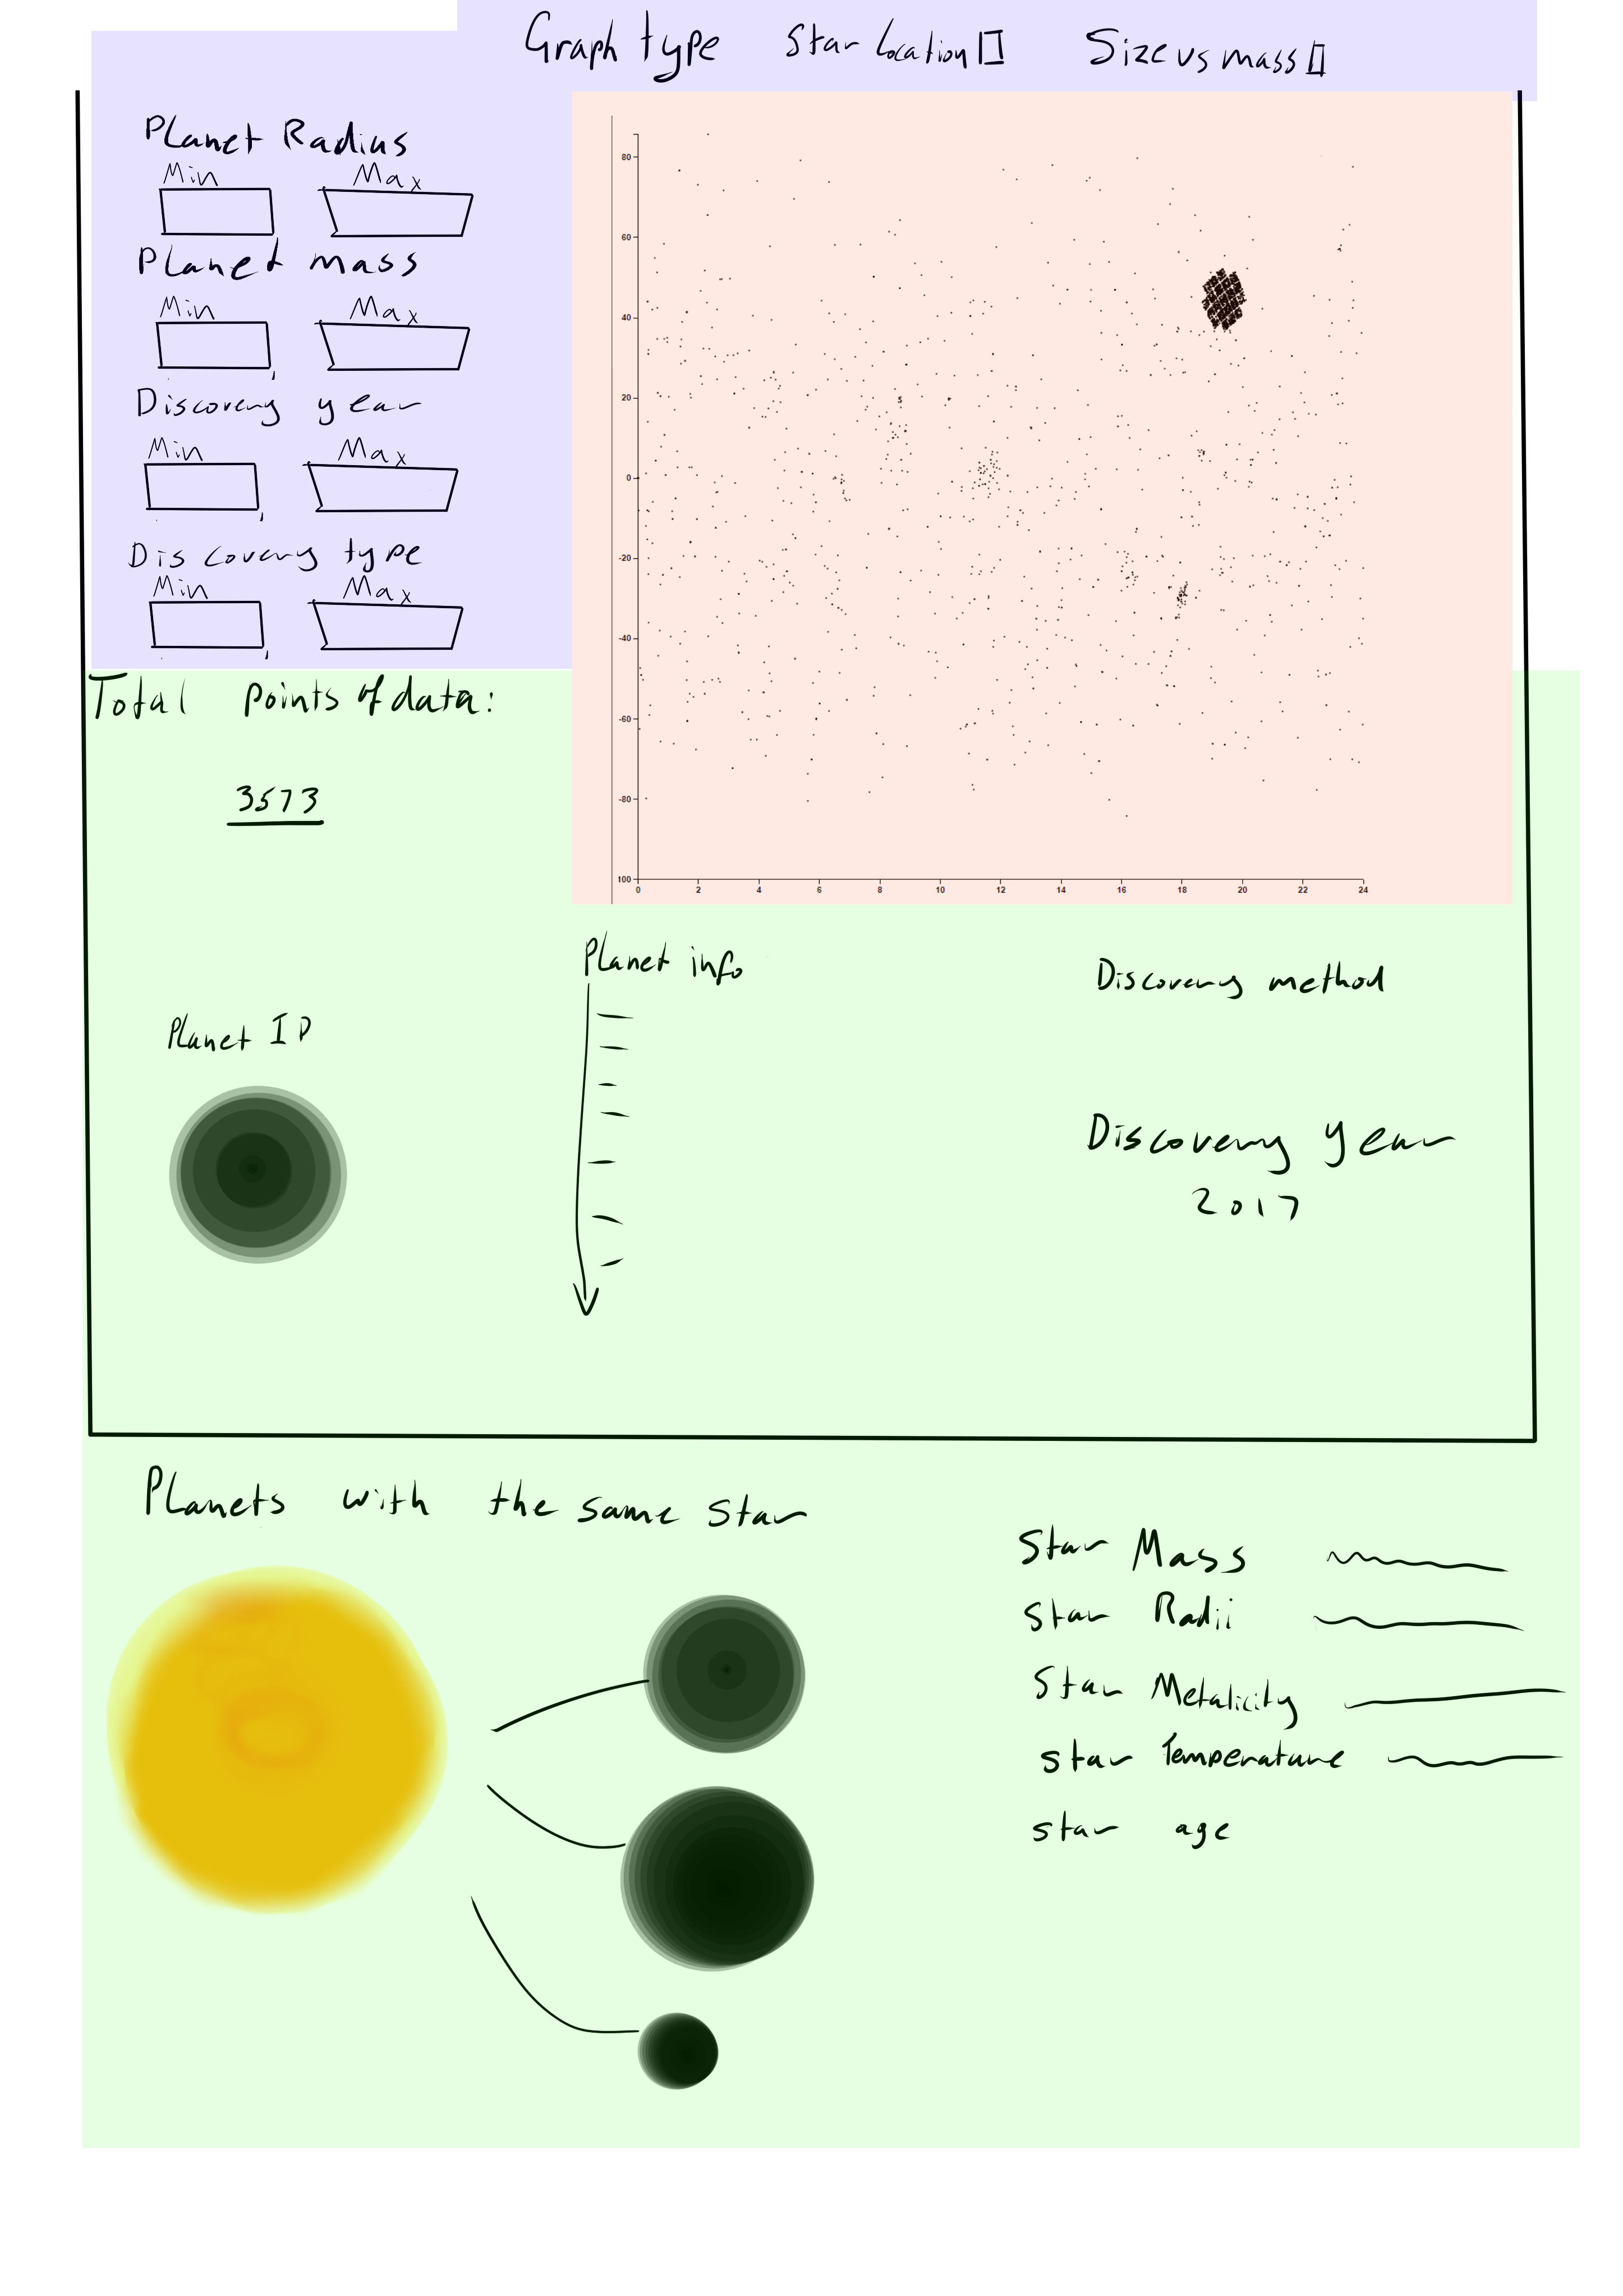 Graph type Star Location Size vs mass
Planet Radius
Min Max
Planet mass
Min Max
Discovery year
Min Max
Discovery type
Min Max
Total points of data:
3573
80
60
40
20
0
-20
-40
-60
-80
100
0 2 4 6 8 10 12 14 16 18 20 22 24
Planet info
Discovery method
Planet ID
Discovery year
2017
Planets with the same star
Star Mass
Star Radii
Star Metalicity
Star Temperature
Star age